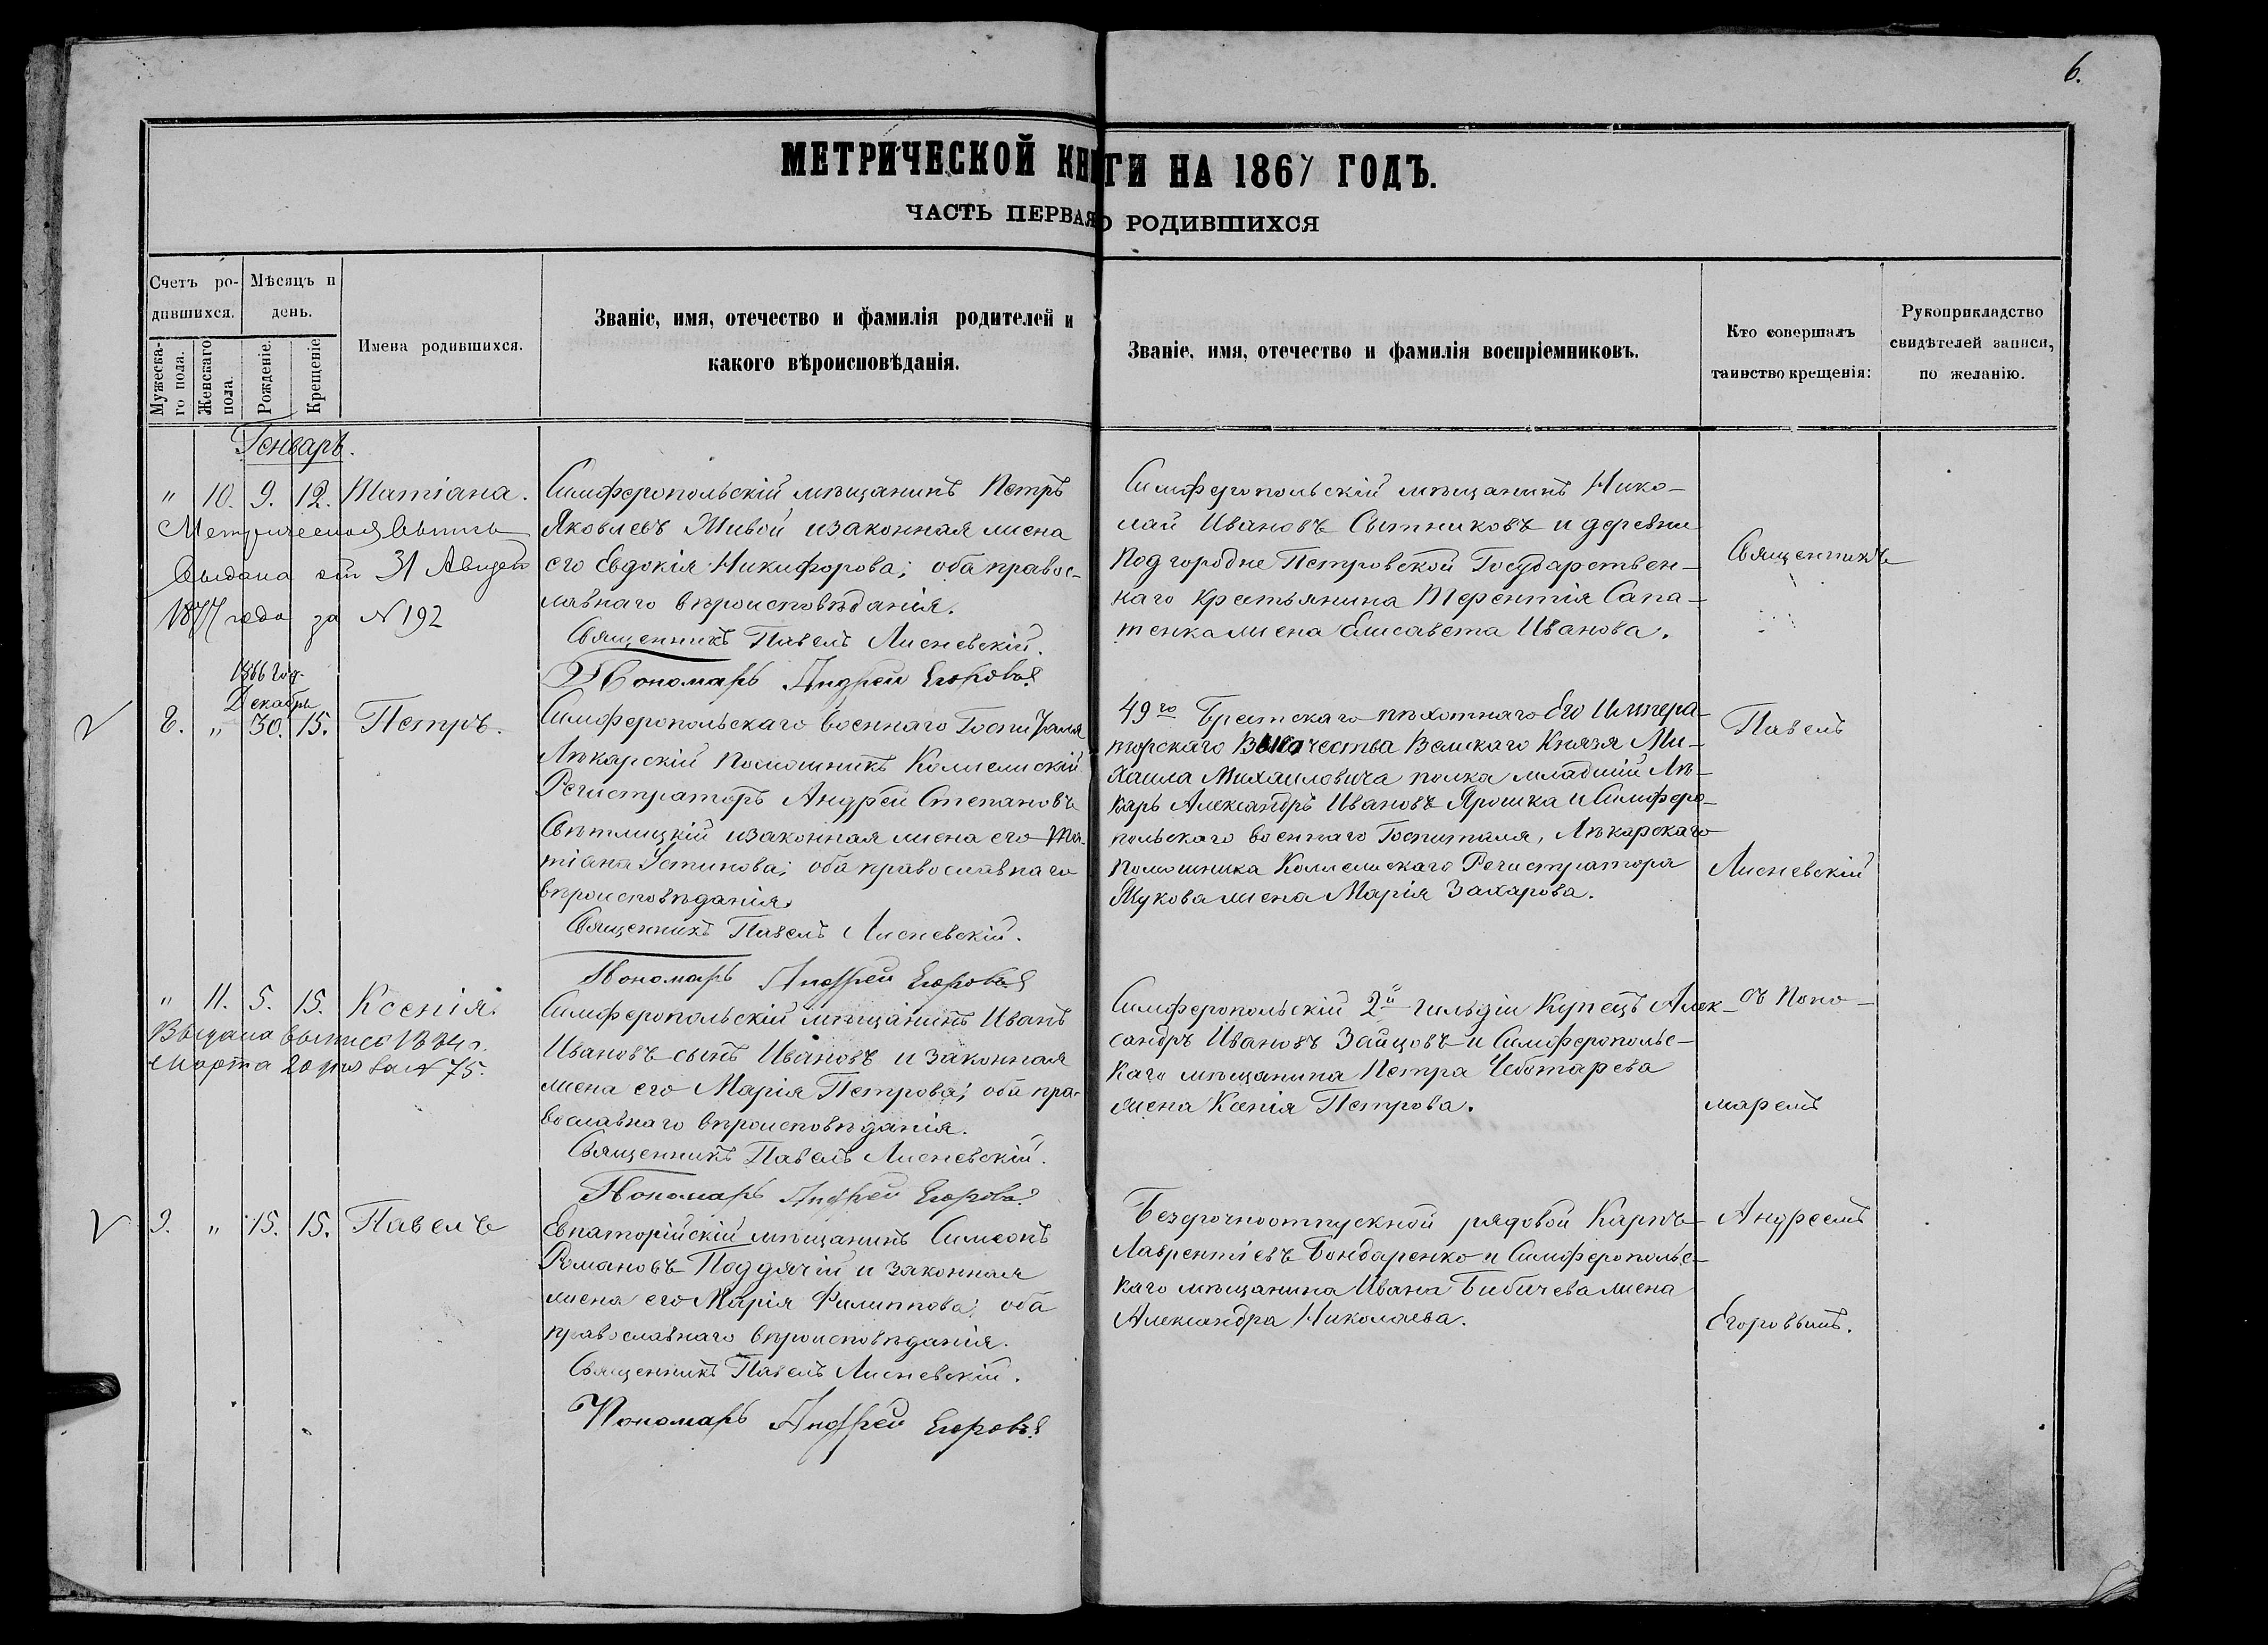 6.
МЕТРИЧЕСКОЙ КНИГИ НА 1867 ГОДЪ.
ЧАСТЬ ПЕРВАЯ О РОДИВШИХСЯ
Счетъ ро-
дившихся.
Мужеска-
го пола.
Женскаго
пола.
Мѣсяцъ и
день.
Рожденіе.
Крещеніе
Имена родившихся.
Званіе, имя, отечество и фамилія родителей и
какого вѣроисповѣданія.
Званіе, имя, отечество и фамилія воспріемниковъ.
Кто совершалъ
таинство крещенія:
Рукоприкладство
свидѣтелей записи,
по желанію.
Генварь.
" 10. 9. 12. Татіана.
Метрическая выпись
выдана от 31 Августа
1877 года за N 192
Симферопольскій мѣщанинъ Петръ
Яковлевъ Живой и законная жена
его Евдокія Никифорова; оба правос-
лавнаго вѣроисповѣданія.
Священникъ Павелъ Лисневскій.
Пономарь Андрей Егоровъ
Симферопольскій мѣщанинъ Нико-
лай Ивановъ Сытниковъ и деревни
Подгородне Петровской Государствен-
наго крестьянина Терентія Сапа-
тенка жена Елисавета Иванова.
Священникъ
1866 год.
Декабрь
8. " 30. 15. Петръ.
Симферопольскаго военнаго Госпиталя
Лѣкарскій Помошникъ Коллежскій
Регистраторъ Андрей Степановъ
Свѣтлицкій и законная жена его Та-
тіана Устинова; оба православнаго
вѣроисповѣданія.
Священникъ Павелъ Лисневскій.
Пономарь Андрей Егоровъ
49го Брестскаго пѣхотнаго Его Импера-
торскаго Высочества Великаго Князя Ми-
хаила Михаиловича полка младшій Лѣ-
карь Александръ Ивановъ Ярошка и Симферо-
польскаго военнаго Госпиталя, Лѣкарскаго
Помошника Коллежскаго Регистратора
Жукова жена Марія Захарова.
Павелъ
Лисневскій
" 11. 5. 15. Ксенія.
Выдана выпись 1884 г.
Марта 20 дня за N 75.
Симферопольскій мѣщанинъ Иванъ
Ивановъ сынъ Ивановъ и законная
жена его Марія Петрова; оба пра-
вославнаго вѣроисповѣданія.
Священникъ Павелъ Лисневскій.
Пономарь Андрей Егоровъ
Симферопольскій 2й гильдіи Купецъ Алек-
сандръ Ивановъ Зайцовъ и Симферопольс-
каго мѣщанина Петра Чеботарева
жена Ксенія Петрова.
съ Поно-
маремъ
9. " 15. 15. Павелъ
Евпаторійскій мѣщанинъ Симеонъ
Романовъ Поддячій и законная
жена его Марія Филиппова; оба
православнаго вѣроисповѣданія.
Священникъ Павелъ Лисневскій.
Пономарь Андрей Егоровъ
Безсрочноотпускной рядовой Карпъ
Лаврентіевъ Бондаренко и Симферопольс-
каго мѣщанина Ивана Бибичева жена
Александра Николаева.
Андреемъ
Егоровымъ.